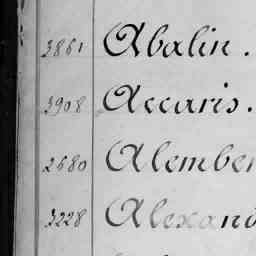 3861 Abalin.
3908 Accaris.
2680 Alember
3228 Alexand